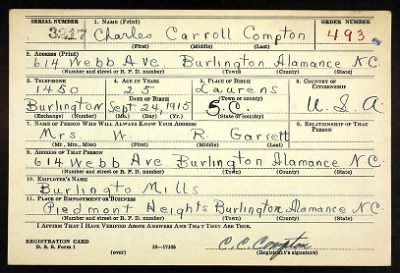 SERIAL NUMBER 1. NAME (Print) ORDER NUMBER
3217 Charles Carroll Compton 493
(First) (Middle) (Last)
2. ADDRESS (Print)
614 Webb Ave Burlington Alamance N.C.
(Number and street or R. F. D. number) (Town) (County) (State)
3. TELEPHONE 4. AGE IN YEARS 5. PLACE OF BIRTH 6. COUNTRY OF CITIZENSHIP
1450 25 Laurens
DATE OF BIRTH (Town or county)
Burlington Sept. 24, 1915 S.C. U.S.A
(Exchange) (Number) (Mo.) (Day) (Yr.) (State or country)
7. NAME OF PERSON WHO WILL ALWAYS KNOW YOUR ADDRESS 8. RELATIONSHIP OF THAT PERSON
Mrs. W. R. Garrett
(Mr., Mrs., Miss) (First) (Middle) (Last)
9. ADDRESS OF THAT PERSON
614 Webb Ave Burlington Alamance N.C.
(Number and street or R. F. D. number) (Town) (County) (State)
10. EMPLOYER'S NAME
Burlingto Mills
11. PLACE OF EMPLOYMENT OR BUSINESS
Piedmont Heights Burlington Alamance N.C.
(Number and street or R. F. D. number) (Town) (County) (State)
I AFFIRM THAT I HAVE VERIFIED ABOVE ANSWERS AND THAT THEY ARE TRUE.
REGISTRATION CARD C. C. Compton
D. S. S. Form 1 (over) 16—17105 (Registrant's signature)